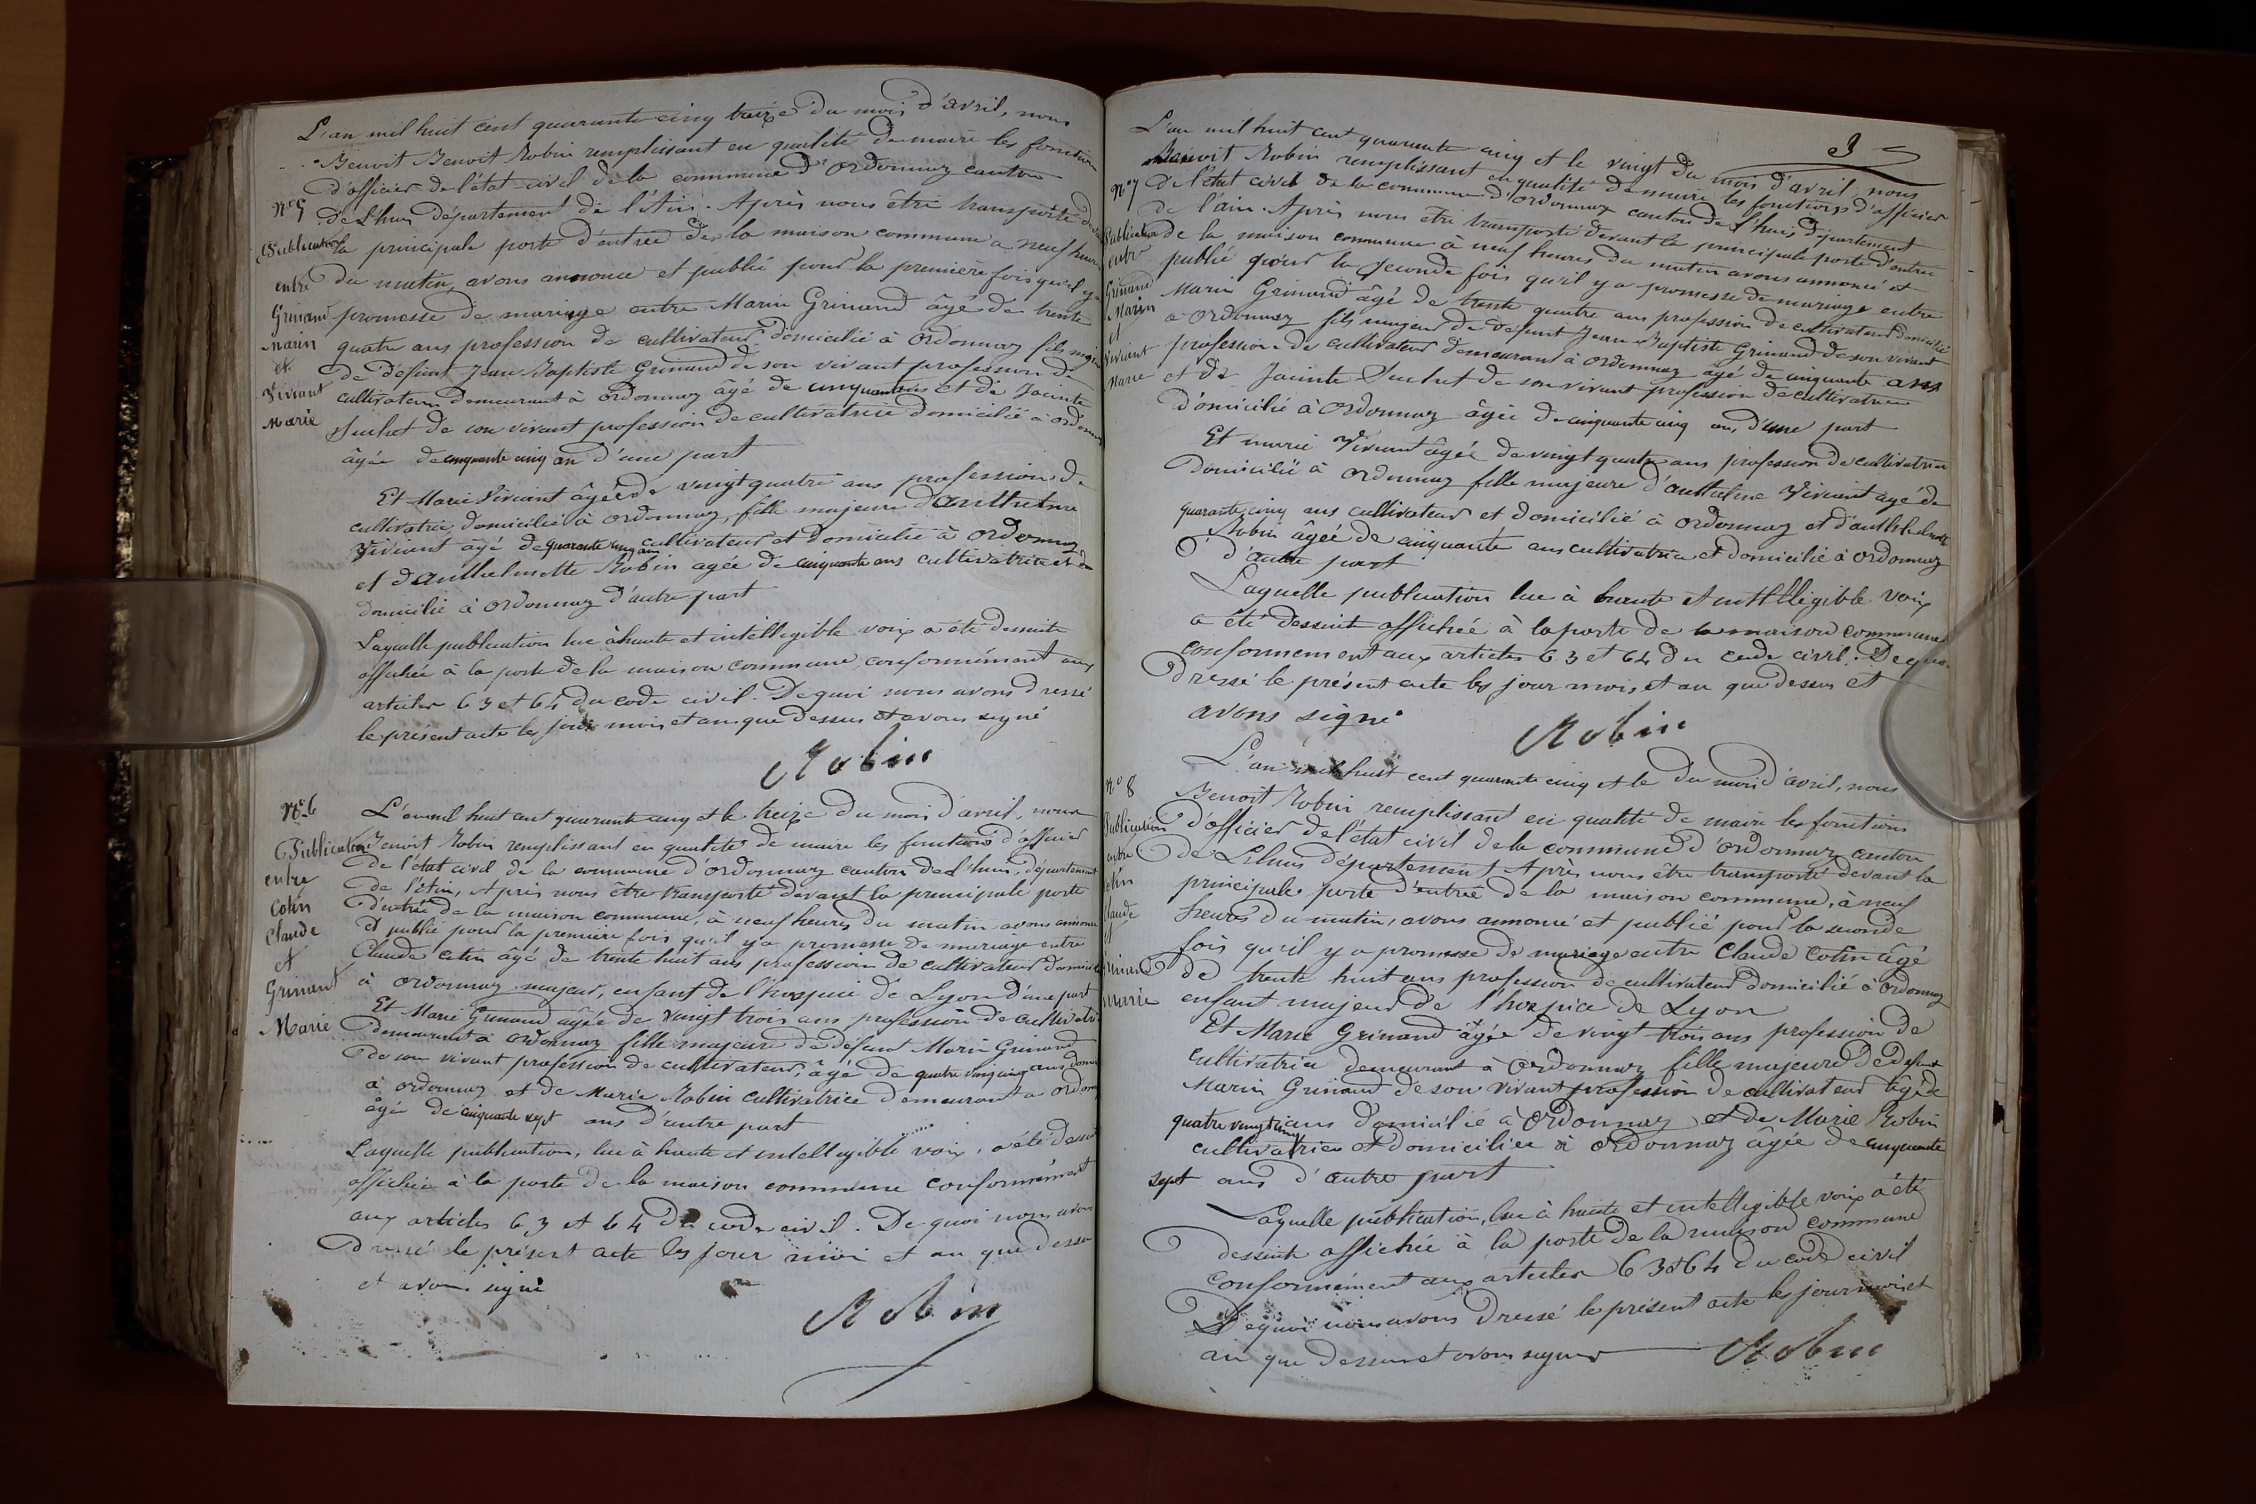 L'an mil huit cent quarante cinq treize du mois d'avril, nous
Benoit Benoit Robin remplissant en qualité de maire les fonctions
d'officier de l'état civil de la commune d'Ordonnaz canton
N° 5
de Lhuis département de l'Ain. Après nous être transporté devant
Publication
la principale porte d'entrée de la maison commune à neuf heures
entre
du matin, avons annoncé et publié pour la première fois qu'il y a
Grinand
promesse de mariage entre Marin Grinand âgé de trente
Marin
quatre ans profession de cultivateur domicilié à Ordonnaz fils majeur
et
de défunt Jean Baptiste Grinand de son vivant profession de
Vivient
cultivateur demeurant à Ordonnaz âgé de cinquante ans et de Jacinte
Marie
Suchet de son vivant profession de cultivatrice domicilié à Ordonnaz
âgée de cinquante cinq an d'une part
Et Marie Vivient âgée de vingt quatre ans profession de
cultivatrice domicilié à Ordonnaz, fille majeure d'anthelme
Vivient âgé de quarante cinq ans cultivateur et domicilié à Ordonnaz
et d'anthelmette Robin agée de cinquante ans cultivatrice et
domicilié à Ordonnaz d'autre part
Laquelle publication lue à haute et intelligible voix a été dessuite
affichée à la porte de la maison commune, conformément aux
articles 63 et 64 du code civil. De quoi nous avons dressé
le présent acte les jour mois et an que dessus et avons signé
Robin
N° 6
L'an mil huit cent quarante cinq et le treize du mois d'avril, nous
Publication
Benoit Robin remplissant en qualité de maire les fonctions d'officier
entre
de l'état civil de la commune d'Ordonnaz canton de Lhuis, département
Cotin
de l'Ain, Après nous être transporté devant la principale porte
Claude
d'entrée de la maison commune, à neuf heures du matin avons annoncé
et
et publié pour la première fois qu'il y a promesse de mariage entre
Grinant
Claude Cotin âgé de trente huit ans profession de cultivateur domicilié
Marie
à Ordonnaz majeur, enfant de l'hospice de Lyon d'une part
Et Marie Grinand âgée de vingt trois ans profession de cultivatrice
demeurant à Ordonnaz fille majeure de défunt Marin Grinand
de son vivant profession de cultivateur, âgé de quatre vingt cinq ans
à Ordonnaz et de Marie Robin cultivatrice demeurant a Ordonnaz
âgée de cinquante sept ans d'autre part
Laquelle publication, lue à haute et intelligible voix, a été dessuite
affichée à la porte de la maison commune conformément
aux articles 63 et 64 du code civil. De quoi nous avons
dressé le présent acte les jour mois et an que dessus
et avons signé
Robin
3
L'an mil huit cent quarante cinq et le vingt du mois d'avril nous
Benoit Robin remplissant en qualité de maire les fonctions d'officier
N° 7
de l'état civil de la commune d'Ordonnaz canton de Lhuis, département
de l'ain. Après nous être transporté devant la principale porte d'entrée
Publication
de la maison commune à neuf heures du matin avons annoncé et
entre
publié pour la seconde fois qu'il y a promesse de mariage entre
Grinand
Marin Grinand âgé de trente quatre ans profession de cultivateur domicilié
Marin
à Ordonnaz fils majeur de défunt Jean Baptiste Grinand de son vivant
et
Vivient
profession de cultivateur demeurant à Ordonnaz âgé de cinquante ans
Marie
et de Jacinte Suchet de son vivant profession de cultivatrice
domicilié à Ordonnaz âgée de cinquante cinq an, d'une part
Et marie Vivient âgée de vingt quatre ans profession de cultivatrice
domicilié à Ordonnaz fille majeure d'anthelme Vivient agé de
quarante cinq ans cultivateur et domicilié à Ordonnaz et d'anthelmette
Robin âgée de cinquante ans cultivatrice et domicilié à Ordonnaz
d'autre part
Laquelle publication lue à haute et intelligible voix
a été dessuite affichée à la porte de la maison commune
conformement aux articles 63 et 64 du code civil. De quoi
dressé le présent acte les jour mois et an que dessus et
avons signé
Robin
L'an mil huit cent quarante cinq et le du mois d'avril, nous
N° 8
Benoit Robin remplissant en qualité de maire les fonctions
Publication
d'officier de l'état civil de la commune d'Ordonnaz canton
entre
de Lhuis département Après nous être transporté devant la
Cotin
principale porte d'entrée de la maison commune, à neuf
Claude
heures du matin, avons annoncé et publié pour la seconde
et
fois qu'il y a promesse de mariage entre Claude Cotin âgé
Grinand
de trente huit ans profession de cultivateur domicilié à Ordonnaz
Marie
enfant majeur de l'hospice de Lyon
Et Marie Grinand âgée de vingt trois ans profession de
cultivatrice demeurant à Ordonnaz fille majeure de défunt
Marin Grinand de son vivant profession de cultivateur âgé de
quatre vingt cinq ans domicilié à Ordonnaz et de Marie Robin
cultivatrice et domiciliée à Ordonnaz âgée de cinquante
sept ans d'autre part
Laquelle publication, lue à haute et intelligible voix a été
dessuite affichée à la porte de la maison commune
conformément aux articles 63 et 64 du code civil
De quoi nous avons dressé le présent acte les jour mois et
an que dessus et avons signé
Robin